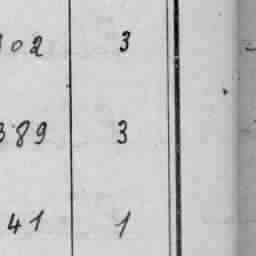 02 3
389 3
41 1